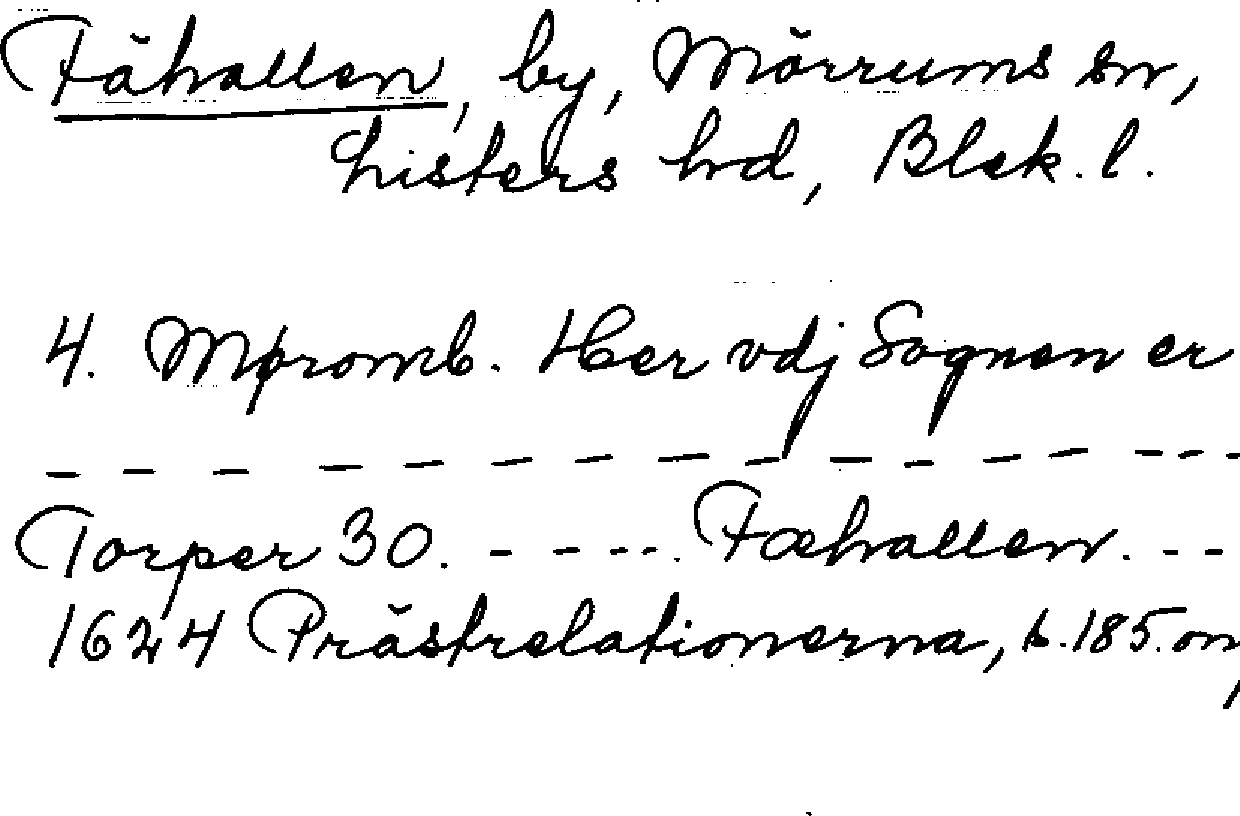 Fähallen, by, Mörrums sn,
Listers hd, Blek. l.
4. Møromb. Her vdj Sognen er
— — — — — — — — — — — — — - - -
Torper 30. - - - - -. Fæhallen. - -
1624 Prästrelationerna, s. 185. om